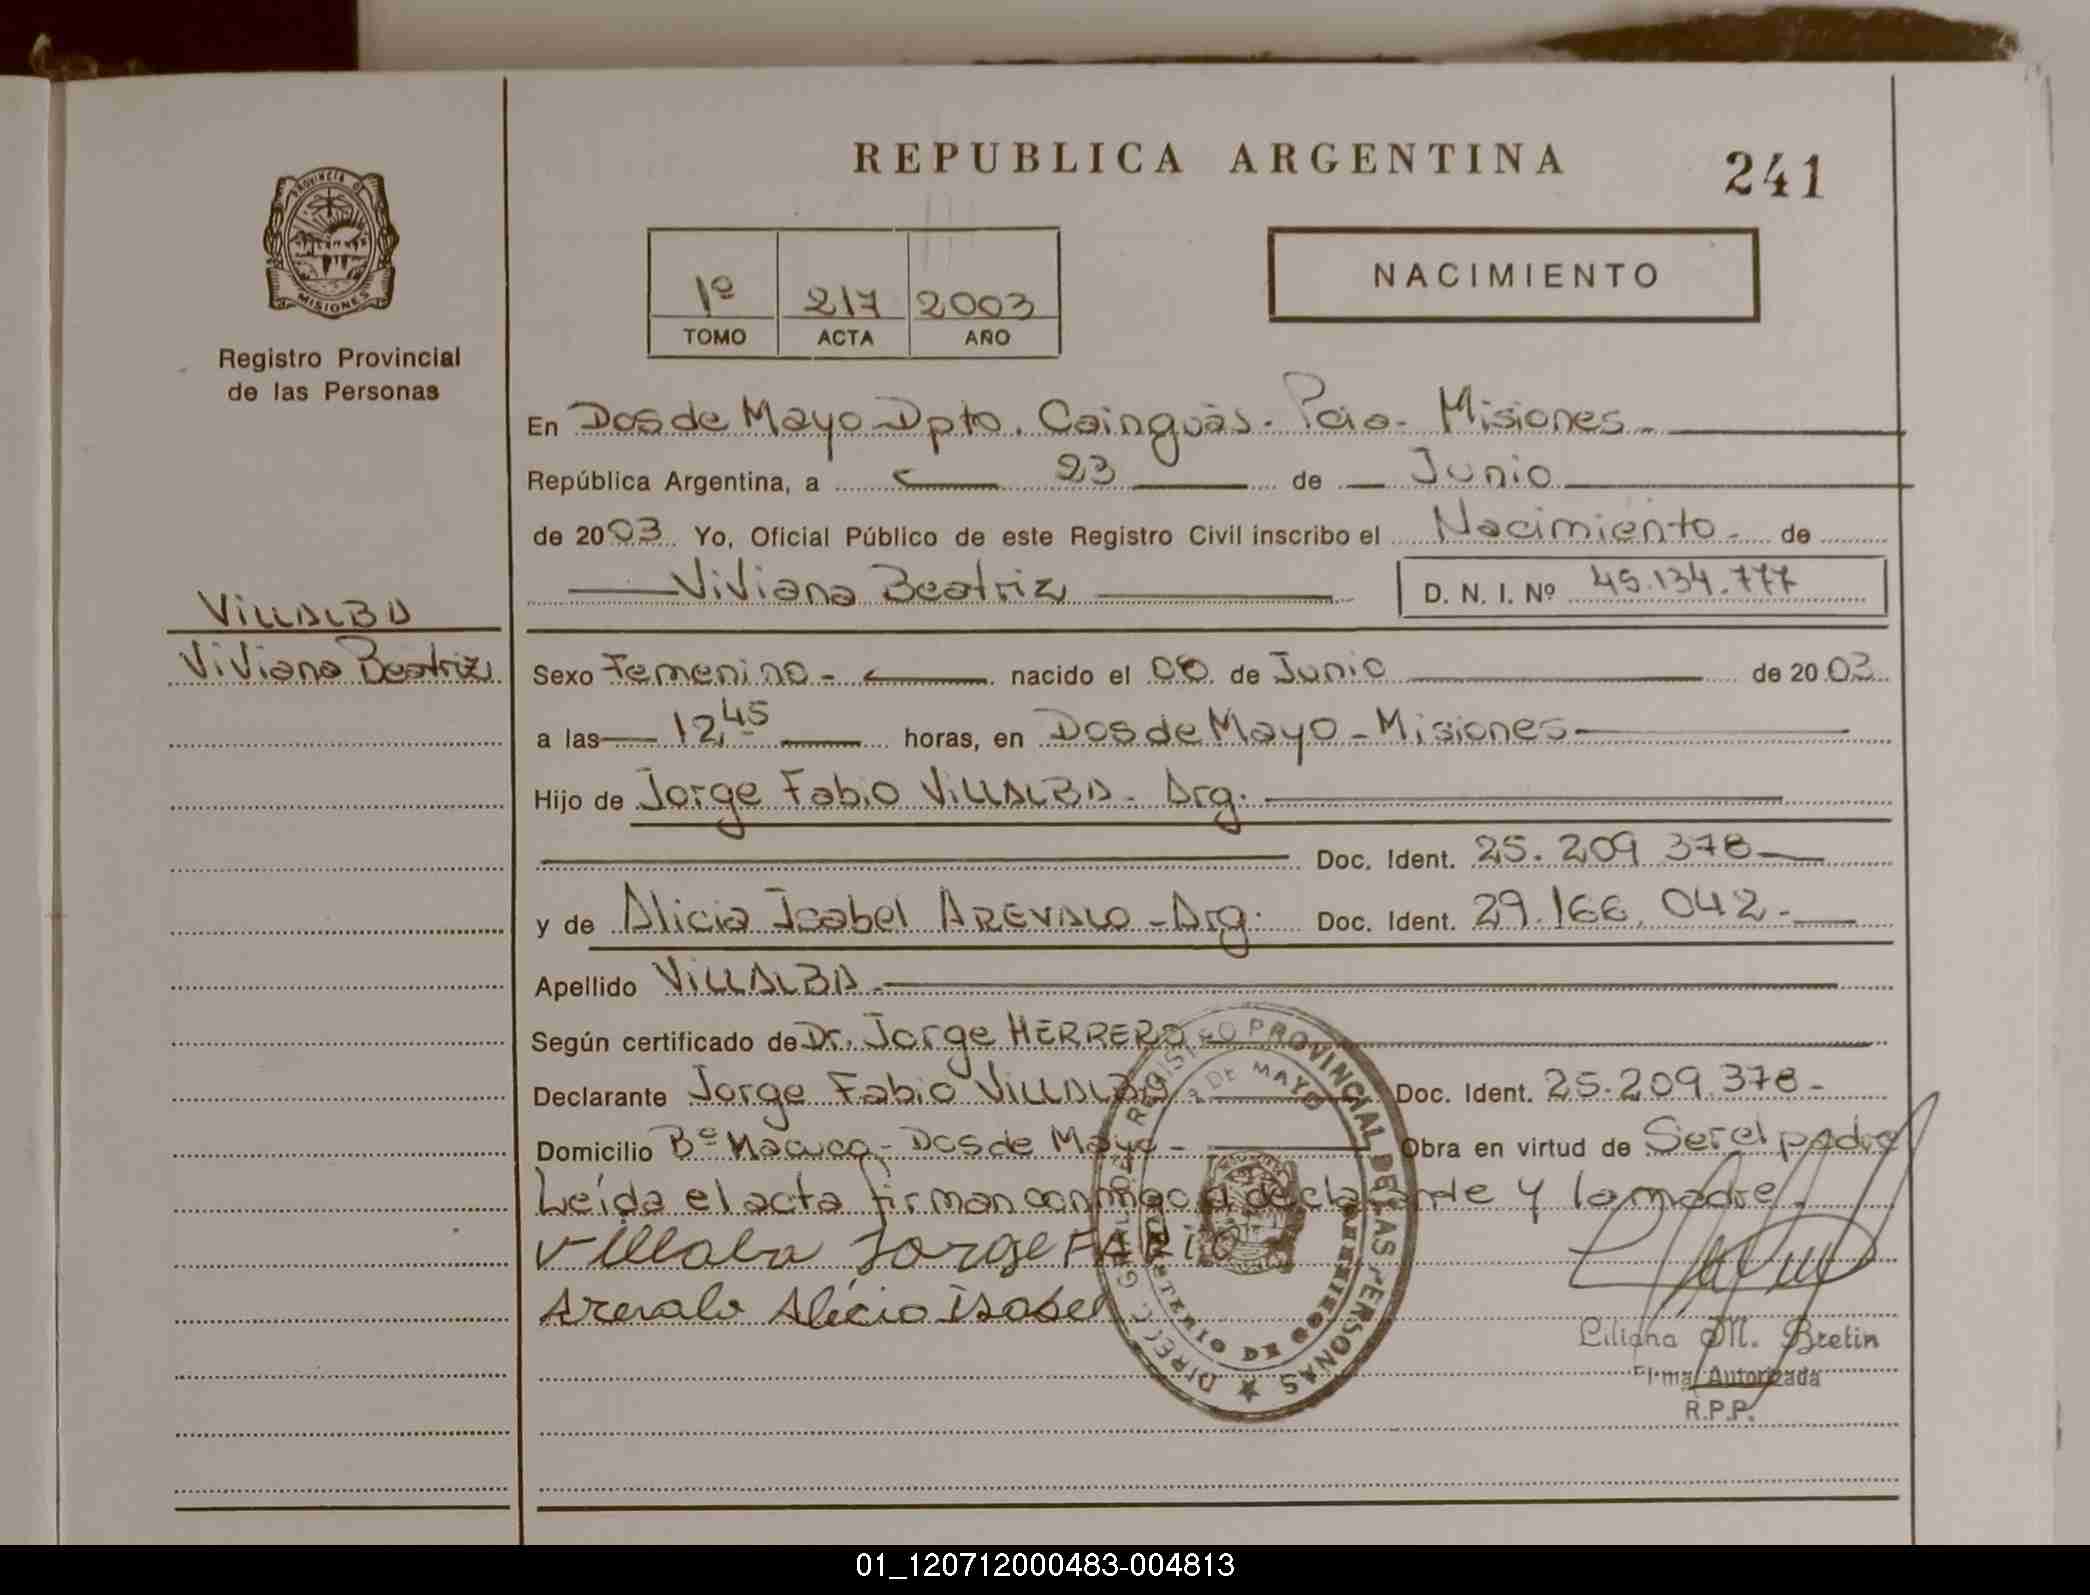 REPUBLICA ARGENTINA
241
PROVINCIA DE
MISIONES
Registro Provincial
de las Personas
1º 217 2003
TOMO ACTA AÑO
NACIMIENTO
En Dos de Mayo Dpto. Cainguàs. Pcia. Misiones
República Argentina, a 23 de Junio
de 2003 Yo, Oficial Público de este Registro Civil inscribo el Nacimiento de
Viviana Beatriz
D. N. I. Nº 45.134.777
VILLALBA
Viviana Beatriz
Sexo Femenino - nacido el 08 de Junio de 2003
a las 12,45 horas, en Dos de Mayo - Misiones
Hijo de Jorge Fabio VILLALBA - Arg.
Doc. Ident. 25.209.378
y de Alicia Isabel AREVALO - Arg. Doc. Ident. 29.166.042.
Apellido VILLALBA
Según certificado de Dr. Jorge HERRERO
Declarante Jorge Fabio VILLALBA Doc. Ident. 25.209.378-
Domicilio Bº - Dos de Mayo - Obra en virtud de Ser el padre
Leída el acta firman conmigo el declarante y la madre.
Villalba Jorge FABIO
Arevalo Alicia Isabel
DIREC. GRAL. DEL REGISTRO PROVINCIAL DE LAS PERSONAS
2 DE MAYO
MINISTERIO DE GOBIERNO
Liliana M. Bretin
Firma Autorizada
R.P.P.
01_120712000483-004813